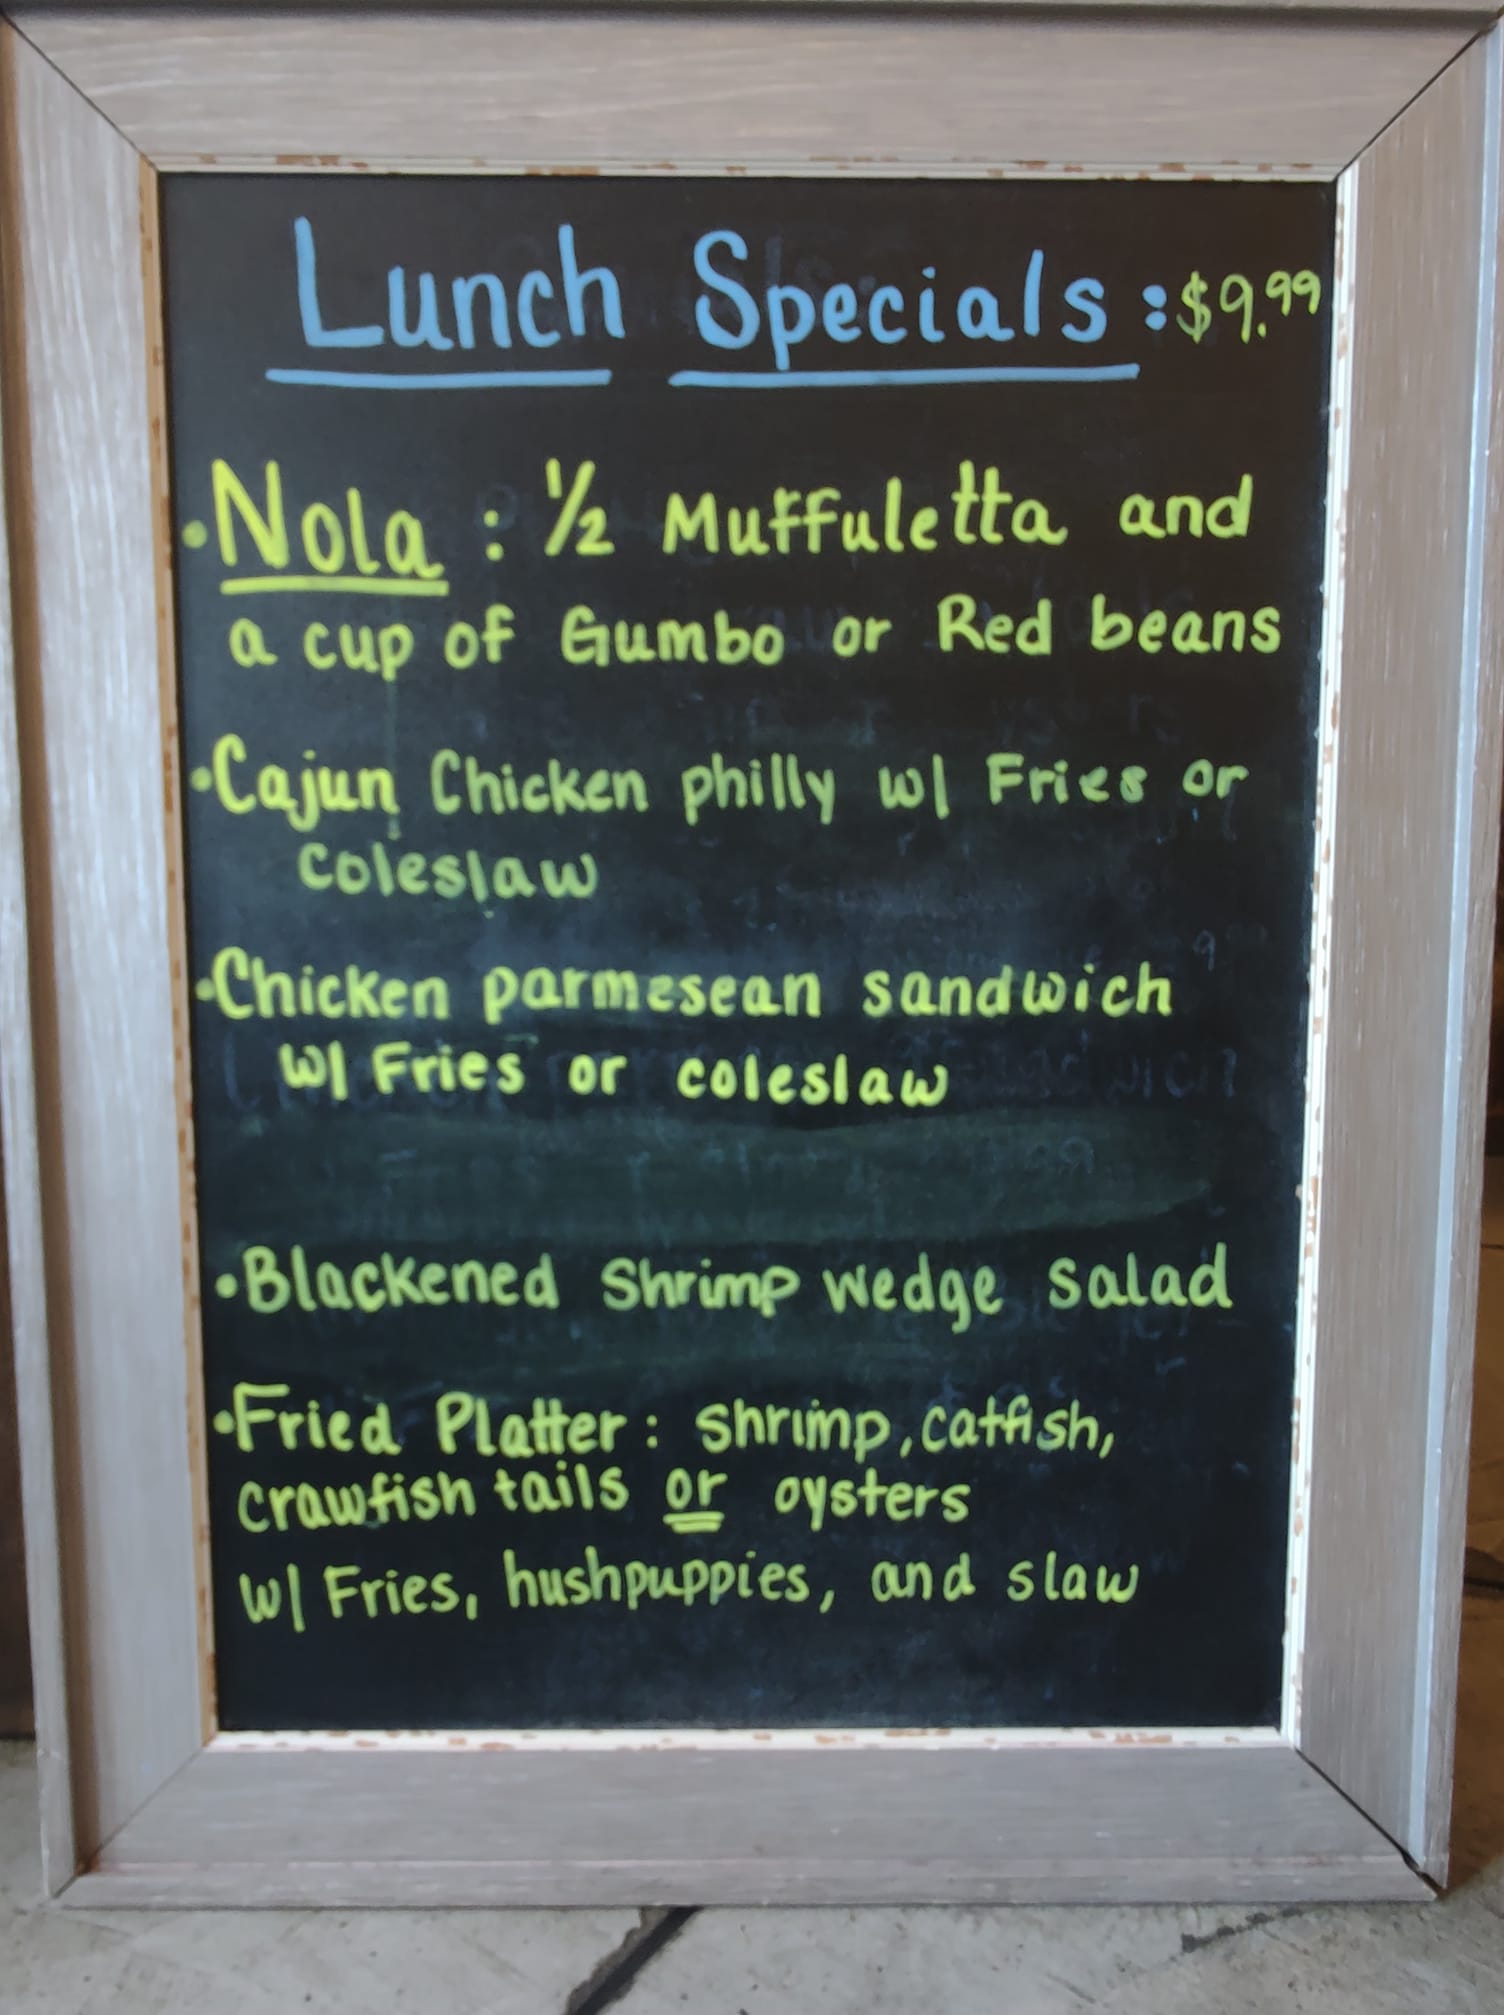 Lunch Specials : $9.99
• Nola : 1/2 Muffuletta and
a cup of Gumbo or Red beans
• Cajun Chicken philly w/ Fries or
coleslaw
• Chicken parmesean sandwich
w/ Fries or coleslaw
• Blackened Shrimp wedge salad
• Fried Platter : shrimp, catfish,
crawfish tails or oysters
w/ Fries, hushpuppies, and slaw